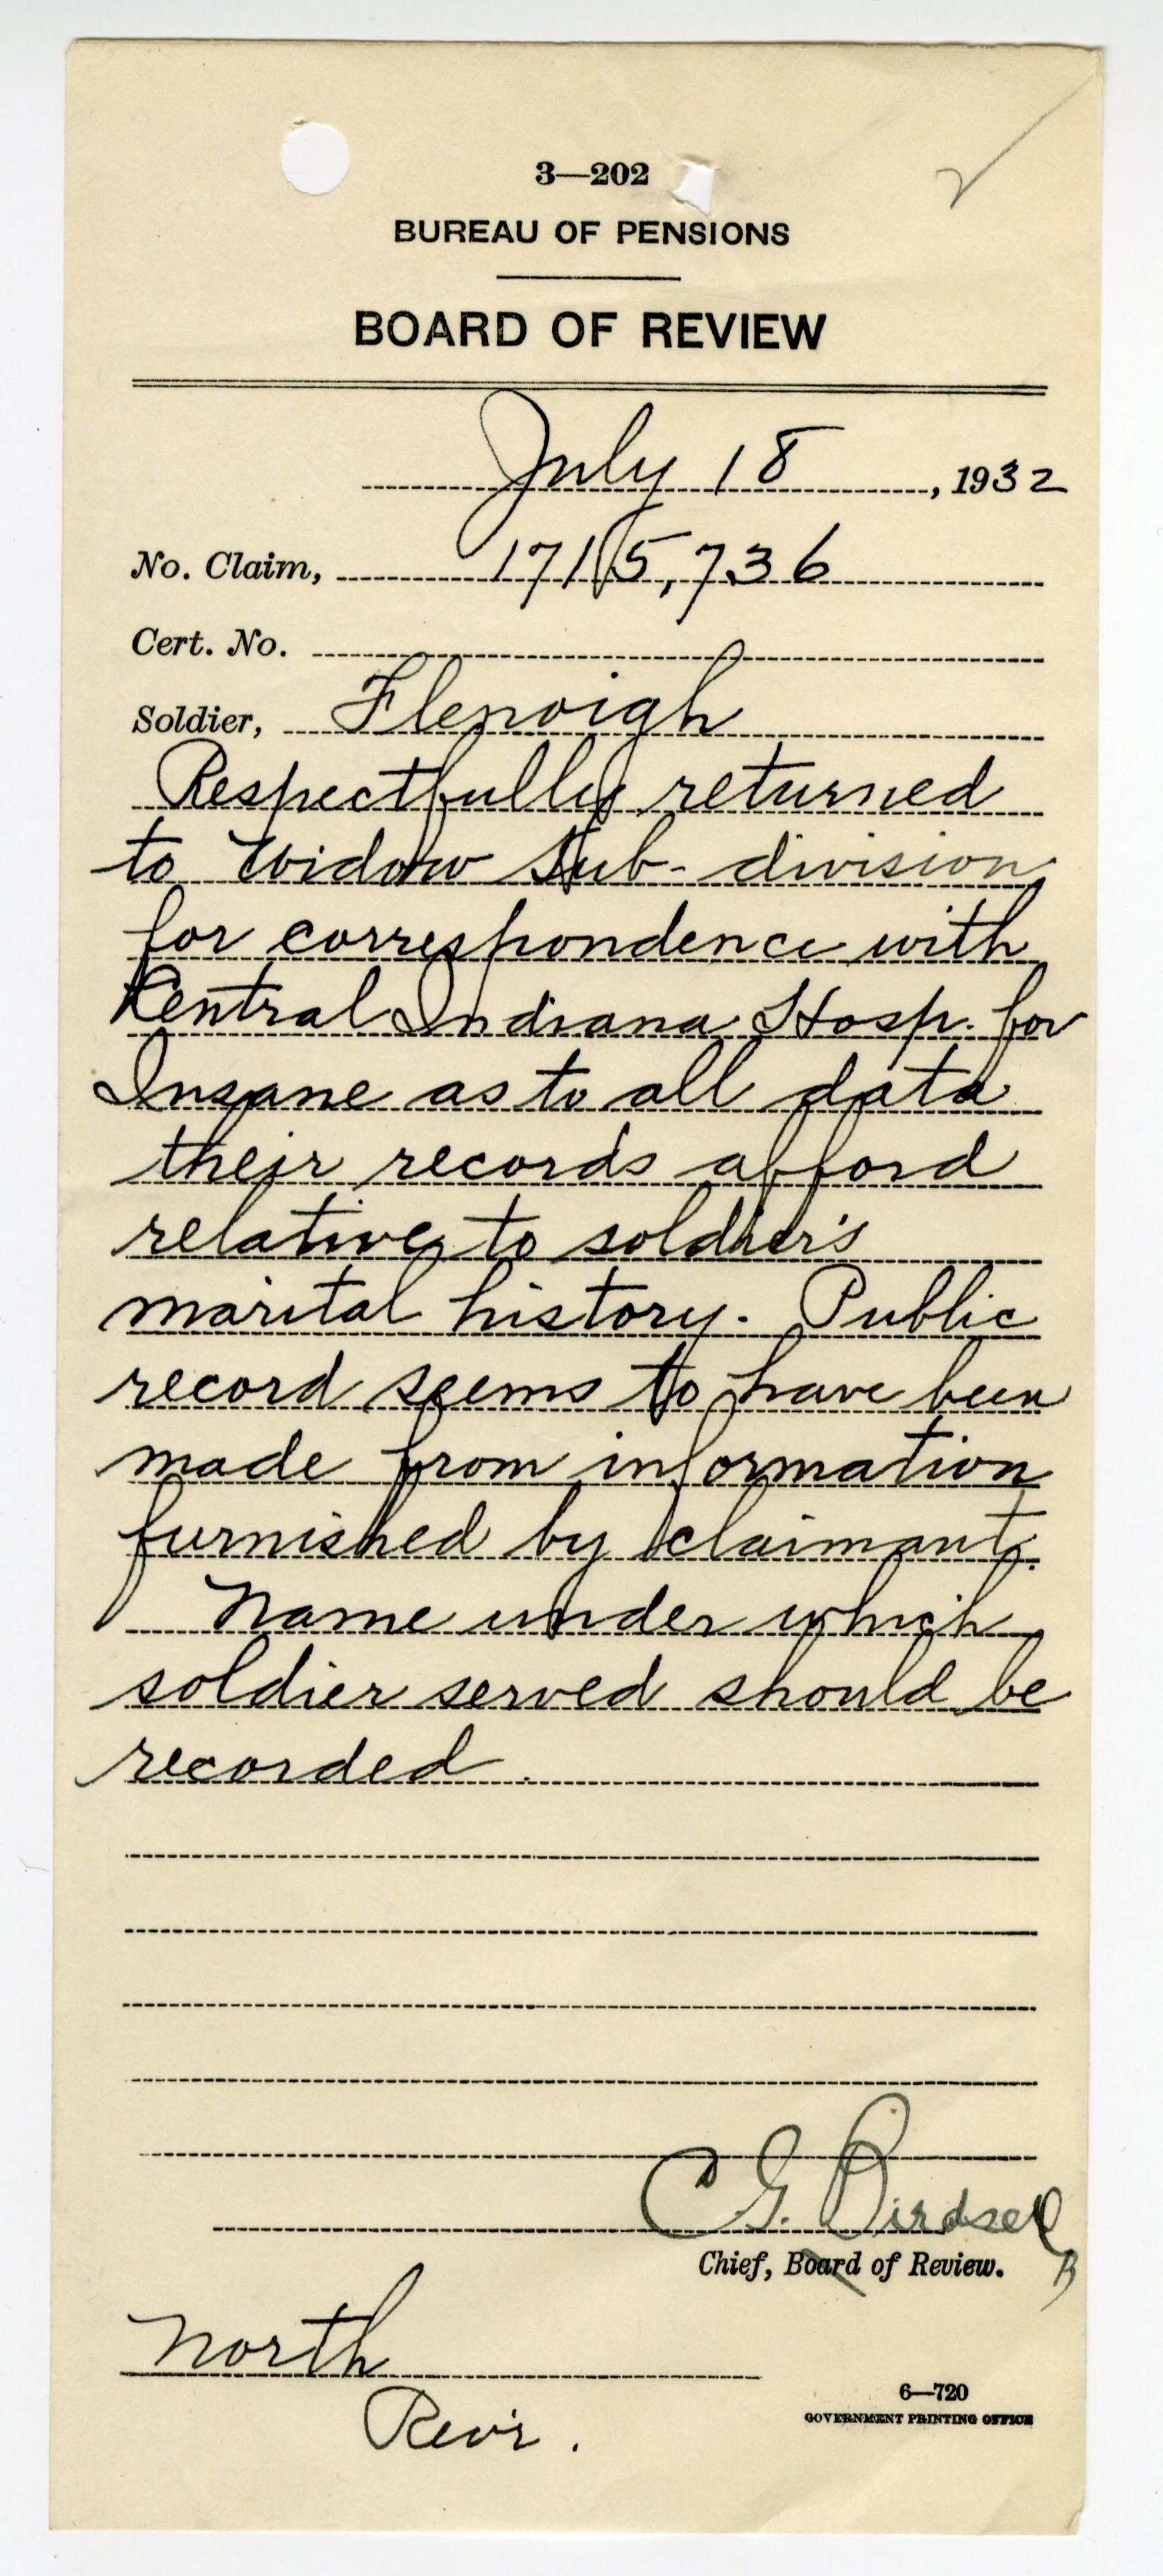 3—202
BUREAU OF PENSIONS
BOARD OF REVIEW
July 18, 1932
No. Claim, 1715,736
Cert. No.
Soldier, Flenoigh
Respectfully returned
to Widow Sub-division
for correspondence with
Central Indiana Hosp. for
Insane as to all data
their records afford
relative to soldier's
marital history. Public
record seems to have been
made from information
furnished by claimant.
Name under which
soldier served should be
recorded.
C G. Birdsell
B
Chief, Board of Review.
North
Rev'r.
6—720
GOVERNMENT PRINTING OFFICE